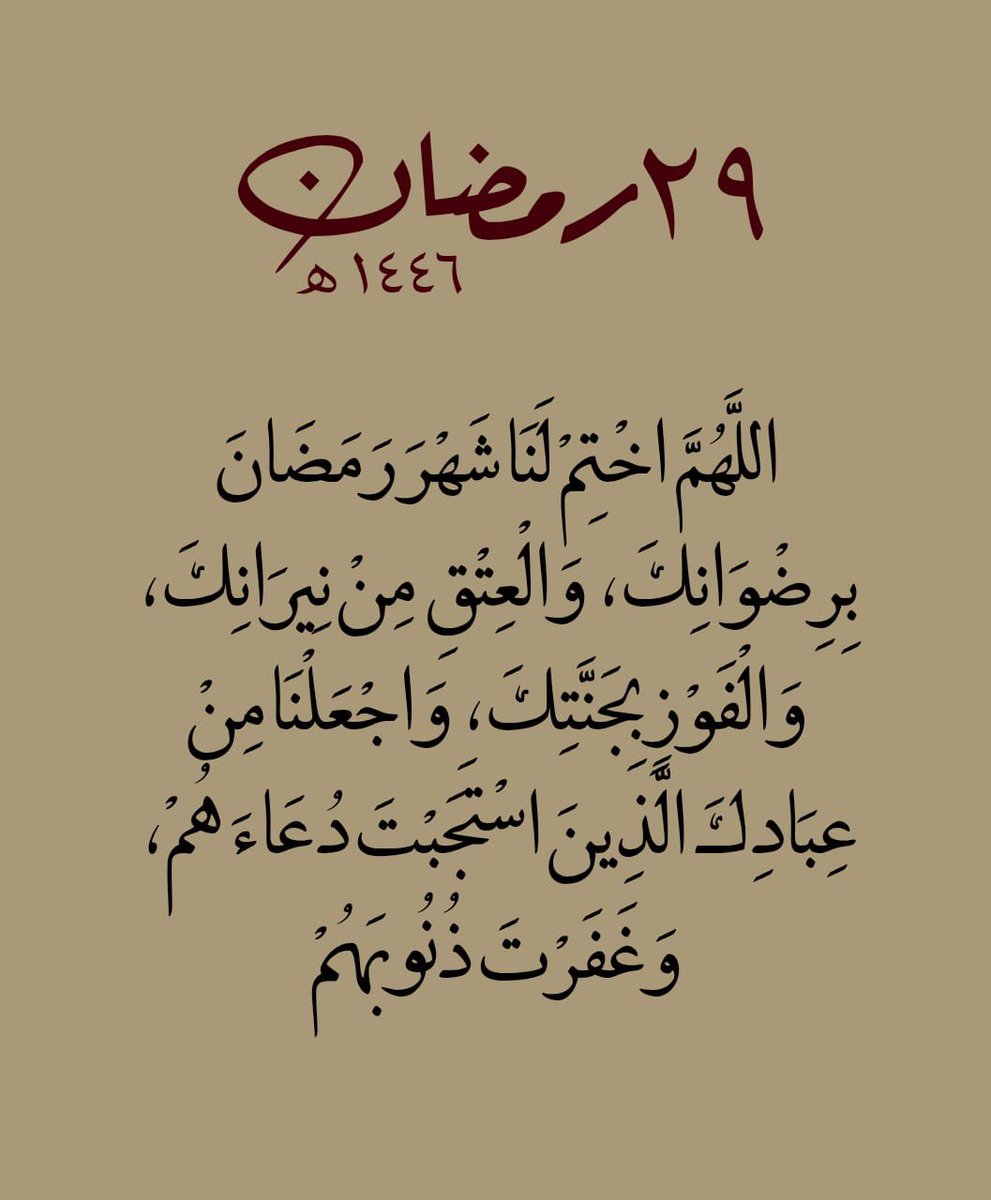 ٢٩ رمضان
١٤٤٦ هـ
اللَّهُمَّ اخْتِمْ لَنَا شَهْرَ رَمَضَانَ
بِرِضْوَانِكَ، وَالْعِتْقِ مِنْ نِيرَانِكَ،
وَالْفَوْزِ بِجَنَّتِكَ، وَاجْعَلْنَا مِنْ
عِبَادِكَ الَّذِينَ اسْتَجَبْتَ دُعَاءَهُمْ،
وَغَفَرْتَ ذُنُوبَهُمْ